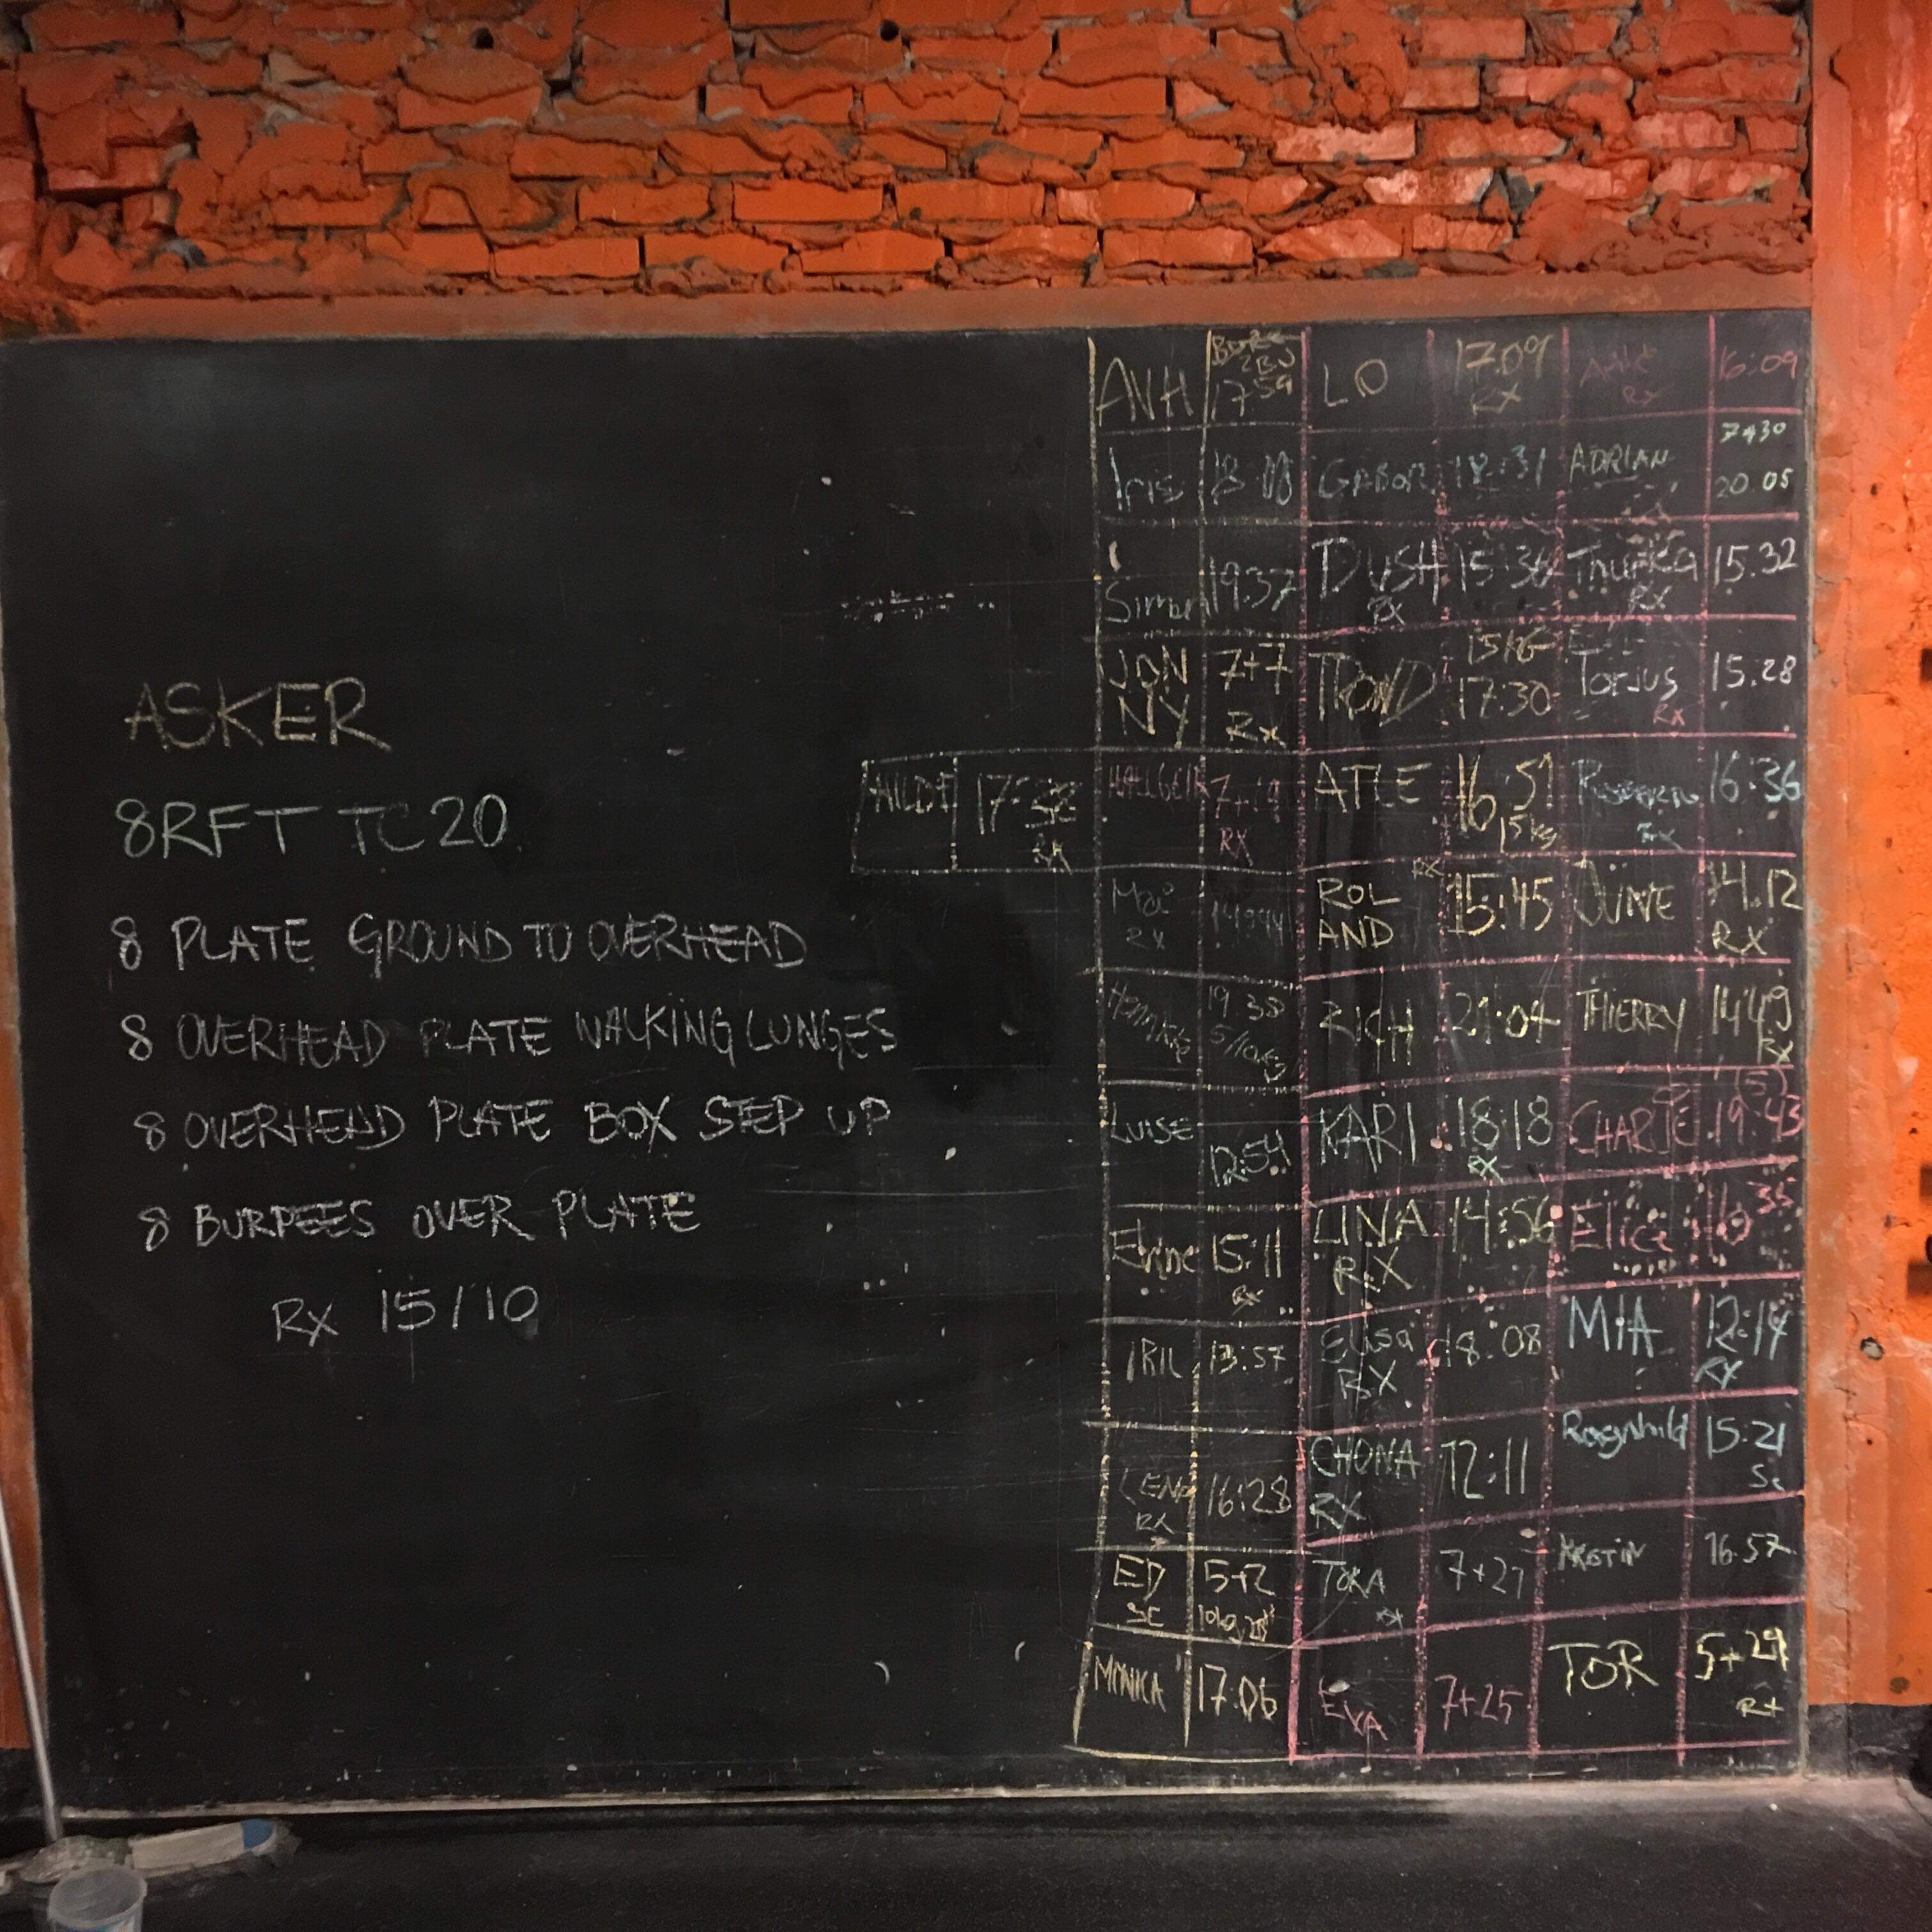 ASKER
8RFT TC20
8 PLATE GROUND TO OVERHEAD
8 OVERHEAD PLATE WALKING LUNGES
8 OVERHEAD PLATE BOX STEP UP
8 BURPEES OVER PLATE
RX 15/10
HILDE 17:38 RX
ANH 17:59
Iris
Simon 19:37
JON NY 7+7 RX
HALLGEIR 7+19 RX
RX
19.38 5/10kg
LUISE 12:54
15:11 RX
IRIL 13:57
LENA RX 16:28
ED SC 5+2
MONICA 17.06
LO 17.09 RX
GABOR 18:31
DUSH RX 15:36
TROND 15KG 17:30
ATLE 16:51 15kg
ROL AND RX 15:45
RICH 21:04
KARI 18:18 RX
LINA RX 14:56
Elisa RX 18:08
CHONA RX 12:11
TOKA RX 7+27
EVA 7+25
RX 16:09
ADRIAN 7+30 20.05
RX 15.32
TORJUS RX 15.28
RX 16:36
JUNE 14.12 RX
THIERRY 14:49 RX
19:43
16:35
MIA 12:14 RX
Ragnhild 15:21 Sc
16:57
TOR 5+29 RX